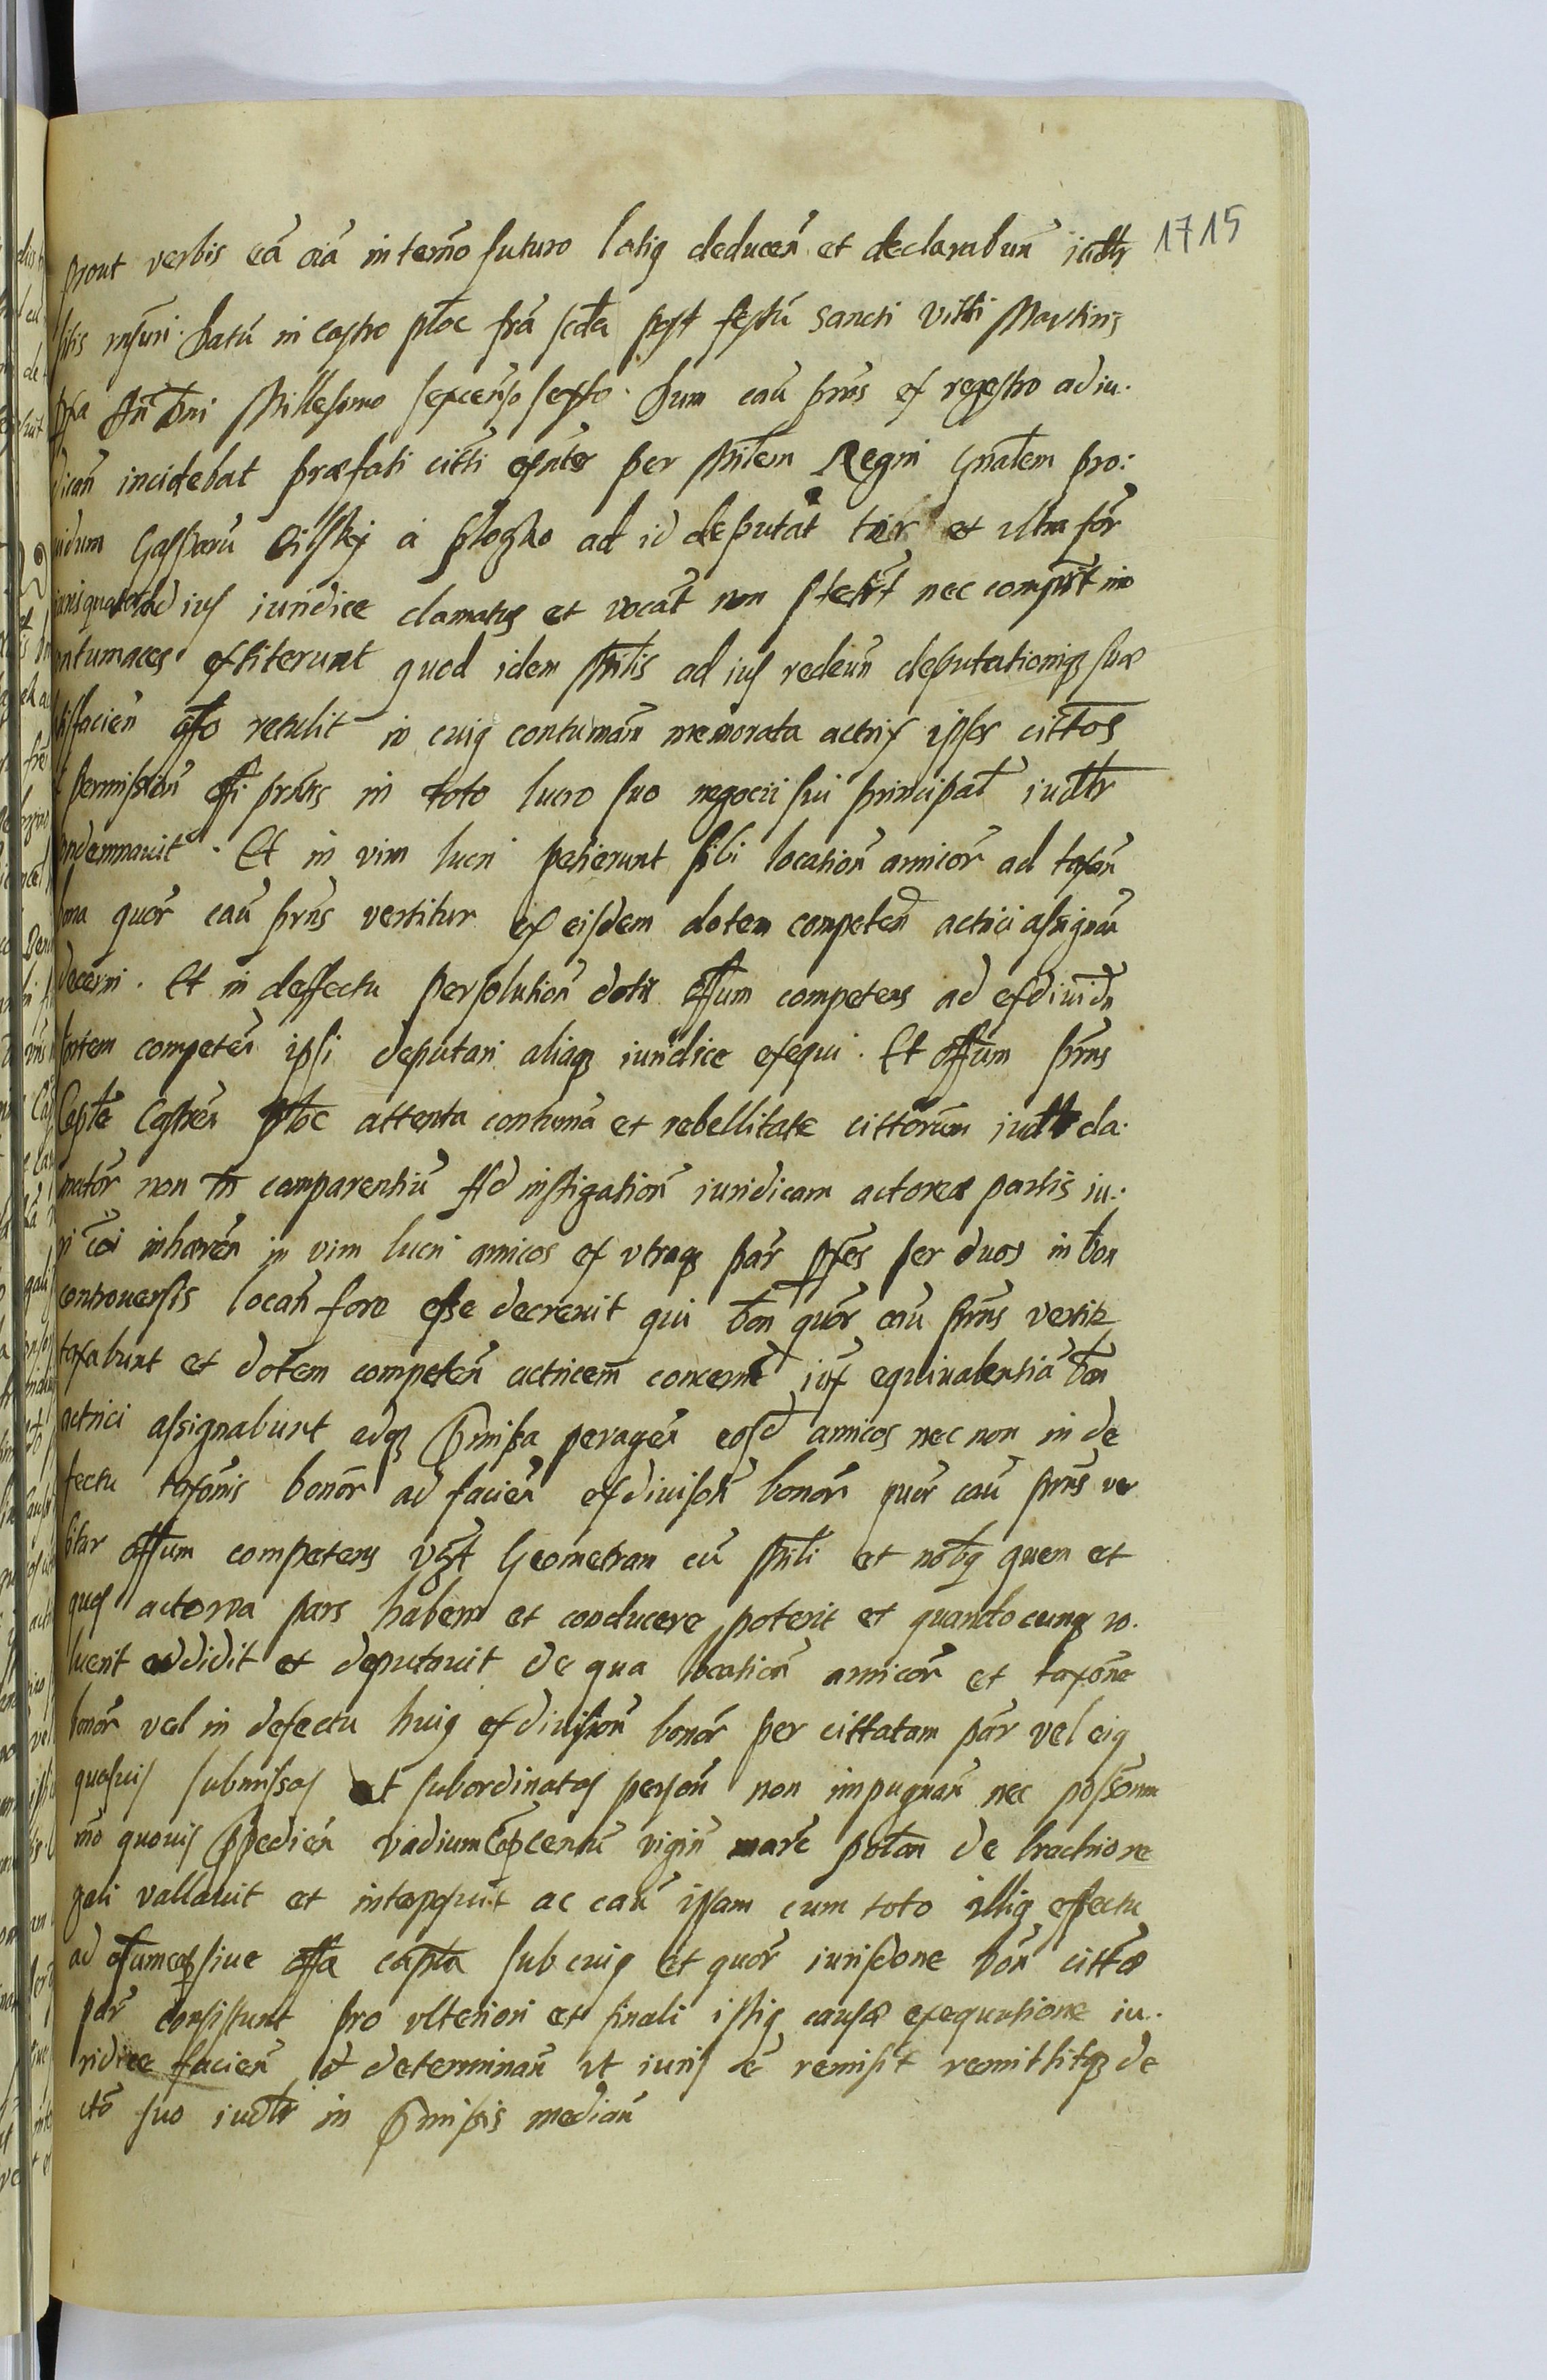 1715
prout verbis eā oīā in termō futuro latiq deducen̄ et declarabun̄ iudltr
sitis nısuri. Datū in Castro ploc fra scda post festū Sancti Vitti Martiris
pxa Ań Dni Millesimo sexcenso sexto. Dum caū prns ex regestro ad iu.
dican̄ incidebat præfati citti exntes per Mnlem Regni Gnalem pro:
uidum Gasparū Oilskj a ploczko ad id deputāt tēr et ultra fōr
iurisquarto ad ius iuridice clamatus et vocāt non steterūt nec comprūt imo
contumaces extiterunt quod idem Mnlis ad ius redeun̄ deputationiq suæ
satisfacien̄ offo retulit in cuiq contuman̄ memorata actrix ipsos cittos
ex permission̄ offi prntis in toto lucro suo negocii sui principal iudltr
condemnauit. Et in vim lucri petierunt sibi location̄ amicōr ad taxan̄
bona quōr caū prns vertitur ex eisdem dotem competen̄ actrici assignan̄
decerni. Et in deffectu persolution̄ dotis offum competens ad exdiuidn̄
sortem competen̄ ipsi deputari aliaq iuridice exequi. Et offum prns
Capīte Castren̄ ploc attenta contumā et rebellitate cittorum iudltr cla.
matōr non tn̄ comparentiū Ad instigation̄ iuridicam actoreæ partis iu:
ri cōi inhæren̄ in vim lucri amicos ex vtraq par pxes per duos in bon
controuersis locan̄ fore esse decreuit qui bon quōr caū prns vertitr
taxabunt et dotem competen̄ actricem concernē iux equiualentiā bon
actrici assignabunt adq Pmissa peragen̄ eosd amicos nec non in de
fectu taxōnis bonōr ad facien̄ exdiuisōn bonōr quōr caū prns ver
titur offum competens vzt Geometram cū Mnli et nobq quem et
quos actorea pars habere et conducere poterit et quandocunq vo.
luerit addidit et deputauit de qua location̄ amicōr et taxōne
bonōr vel in defectu huiq exdiuision̄ bonōr per cittatam pār vel eiq
quosuis submissas et subordinatas person̄ non impugnan̄ nec possonm
mō quouis Ppedien̄ vadium centū vigin̄ marc polon de bractione
gali vallauit et interposuit ac caū ipsam cum toto illiq effectu
ad offum siue offa capta sub cuiq et quōr iurisdone bōn cittæ
pār consistunt pro vlteriori et finali istiq causæ exequutione iu.
ridice facien̄ et determinan̄ vt iuris ē remisit remittitq de
ctō suo iudltr in Pmissis median̄